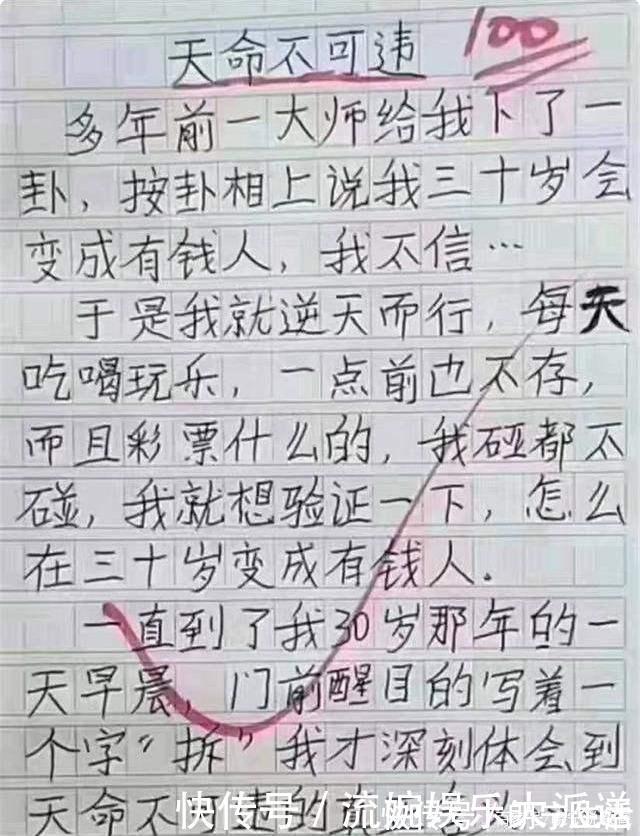 天命不可违 100
多年前一大师给我下了一
卦，按卦相上说我三十岁会
变成有钱人，我不信…
于是我就逆天而行，每天
吃喝玩乐，一点前也不存，
而且彩票什么的，我碰都不
碰，我就想验证一下，怎么
在三十岁变成有钱人。
一直到了我30岁那年的一
天早晨，门前醒目的写着一
个字“拆”我才深刻体会到
天命不可违的
快传号/流婉娱乐大派送